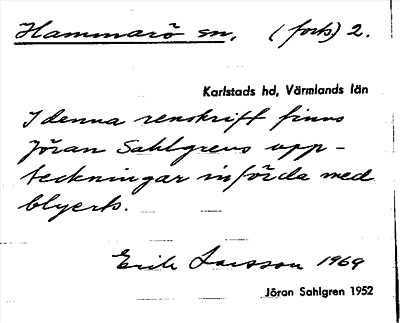 Hammarö sn, (forts) 2.
Karlstads hd, Värmlands län
I denna renskrift finns
Jöran Sahlgrens upp-
teckningar införda med
blyerts.
Erik Larsson 1969
Jöran Sahlgren 1952